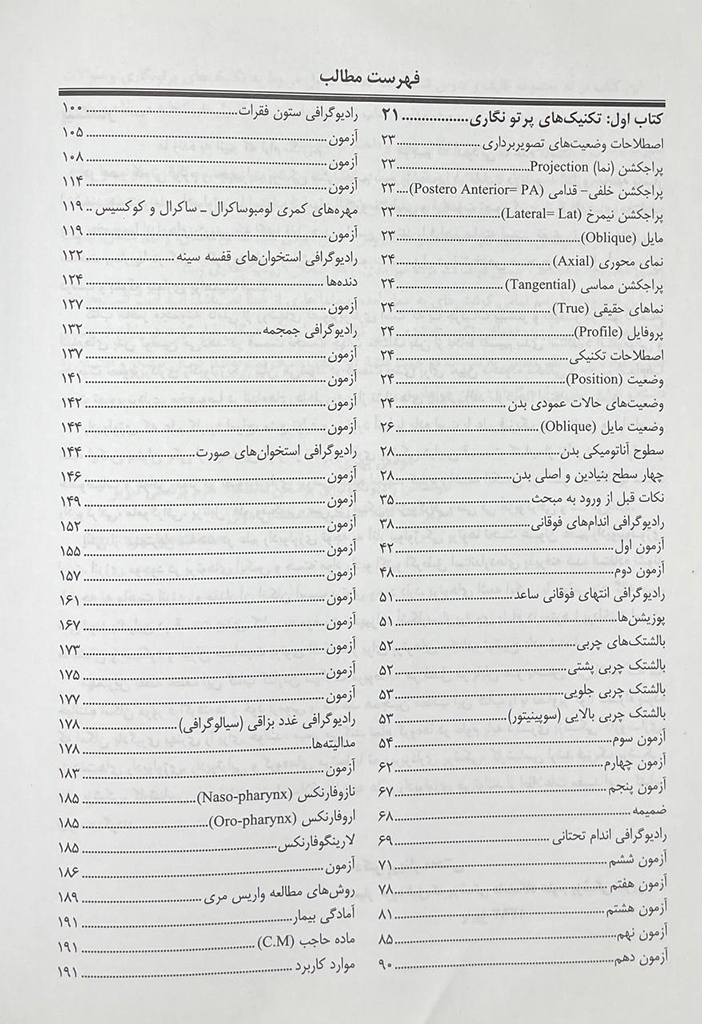 فهرست مطالب
کتاب اول: تکنیک‌های پرتو نگاری................۲۱
اصطلاحات وضعیت‌های تصویربرداری................۲۳
پراجکشن (نما) Projection................۲۳
پراجکشن خلفی- قدامی (Postero Anterior= PA)....۲۳
پراجکشن نیمرخ (Lateral= Lat)................۲۳
مایل (Oblique)................۲۳
نمای محوری (Axial)................۲۴
پراجکشن مماسی (Tangential)................۲۴
نماهای حقیقی (True)................۲۴
پروفایل (Profile)................۲۴
اصطلاحات تکنیکی................۲۴
وضعیت (Position)................۲۴
وضعیت‌های حالات عمودی بدن................۲۴
وضعیت مایل (Oblique)................۲۶
سطوح آناتومیکی بدن................۲۸
چهار سطح بنیادین و اصلی بدن................۲۸
نکات قبل از ورود به مبحث................۳۵
رادیوگرافی اندام‌های فوقانی................۳۸
آزمون اول................۴۲
آزمون دوم................۴۸
رادیوگرافی انتهای فوقانی ساعد................۵۱
پوزیشن‌ها................۵۱
بالشتک‌های چربی................۵۲
بالشتک چربی پشتی................۵۲
بالشتک چربی جلویی................۵۳
بالشتک چربی بالایی (سوپینیتور)................۵۳
آزمون سوم................۵۴
آزمون چهارم................۶۲
آزمون پنجم................۶۷
ضمیمه................۶۸
رادیوگرافی اندام تحتانی................۶۹
آزمون ششم................۷۱
آزمون هفتم................۷۸
آزمون هشتم................۸۱
آزمون نهم................۸۵
آزمون دهم................۹۰
رادیوگرافی ستون فقرات................۱۰۰
آزمون................۱۰۵
آزمون................۱۰۸
آزمون................۱۱۴
مهره‌های کمری لومبوساکرال ـ ساکرال و کوکسیس ..۱۱۹
آزمون................۱۱۹
رادیوگرافی استخوان‌های قفسه سینه................۱۲۲
دنده‌ها................۱۲۴
آزمون................۱۲۷
رادیوگرافی جمجمه................۱۳۲
آزمون................۱۳۷
آزمون................۱۴۱
آزمون................۱۴۲
آزمون................۱۴۴
رادیوگرافی استخوان‌های صورت................۱۴۴
آزمون................۱۴۶
آزمون................۱۴۹
آزمون................۱۵۲
آزمون................۱۵۵
آزمون................۱۵۷
آزمون................۱۶۱
آزمون................۱۶۷
آزمون................۱۷۳
آزمون................۱۷۵
آزمون................۱۷۷
رادیوگرافی غدد بزاقی (سیالوگرافی)................۱۷۸
مدالیته‌ها................۱۷۸
آزمون................۱۸۳
نازوفارنکس (Naso-pharynx)................۱۸۵
اروفارنکس (Oro-pharynx)................۱۸۵
لارینگوفارنکس................۱۸۵
آزمون................۱۸۶
روش‌های مطالعه واریس مری................۱۸۹
آمادگی بیمار................۱۹۱
ماده حاجب (C.M)................۱۹۱
موارد کاربرد................۱۹۱